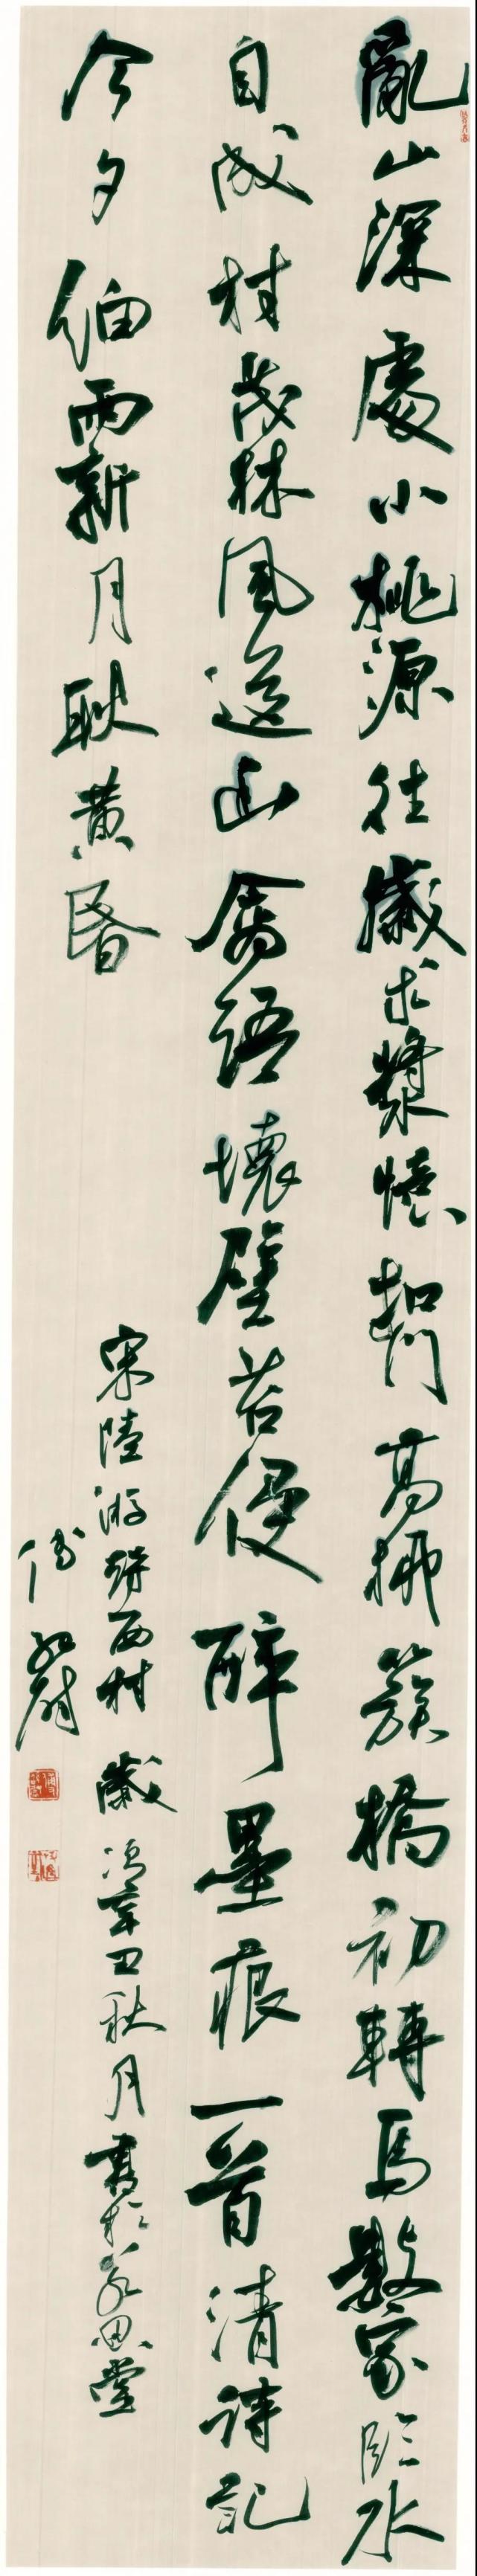 亂山深處小桃源往歲求漿憶叩門高柳簇橋初轉馬數家臨水
自成村茂林風送幽禽語壞壁苔侵醉墨痕一首清詩記
今夕細雨新月耿黃昏
宋陸游遊西村歲次辛丑秋月書於養思堂